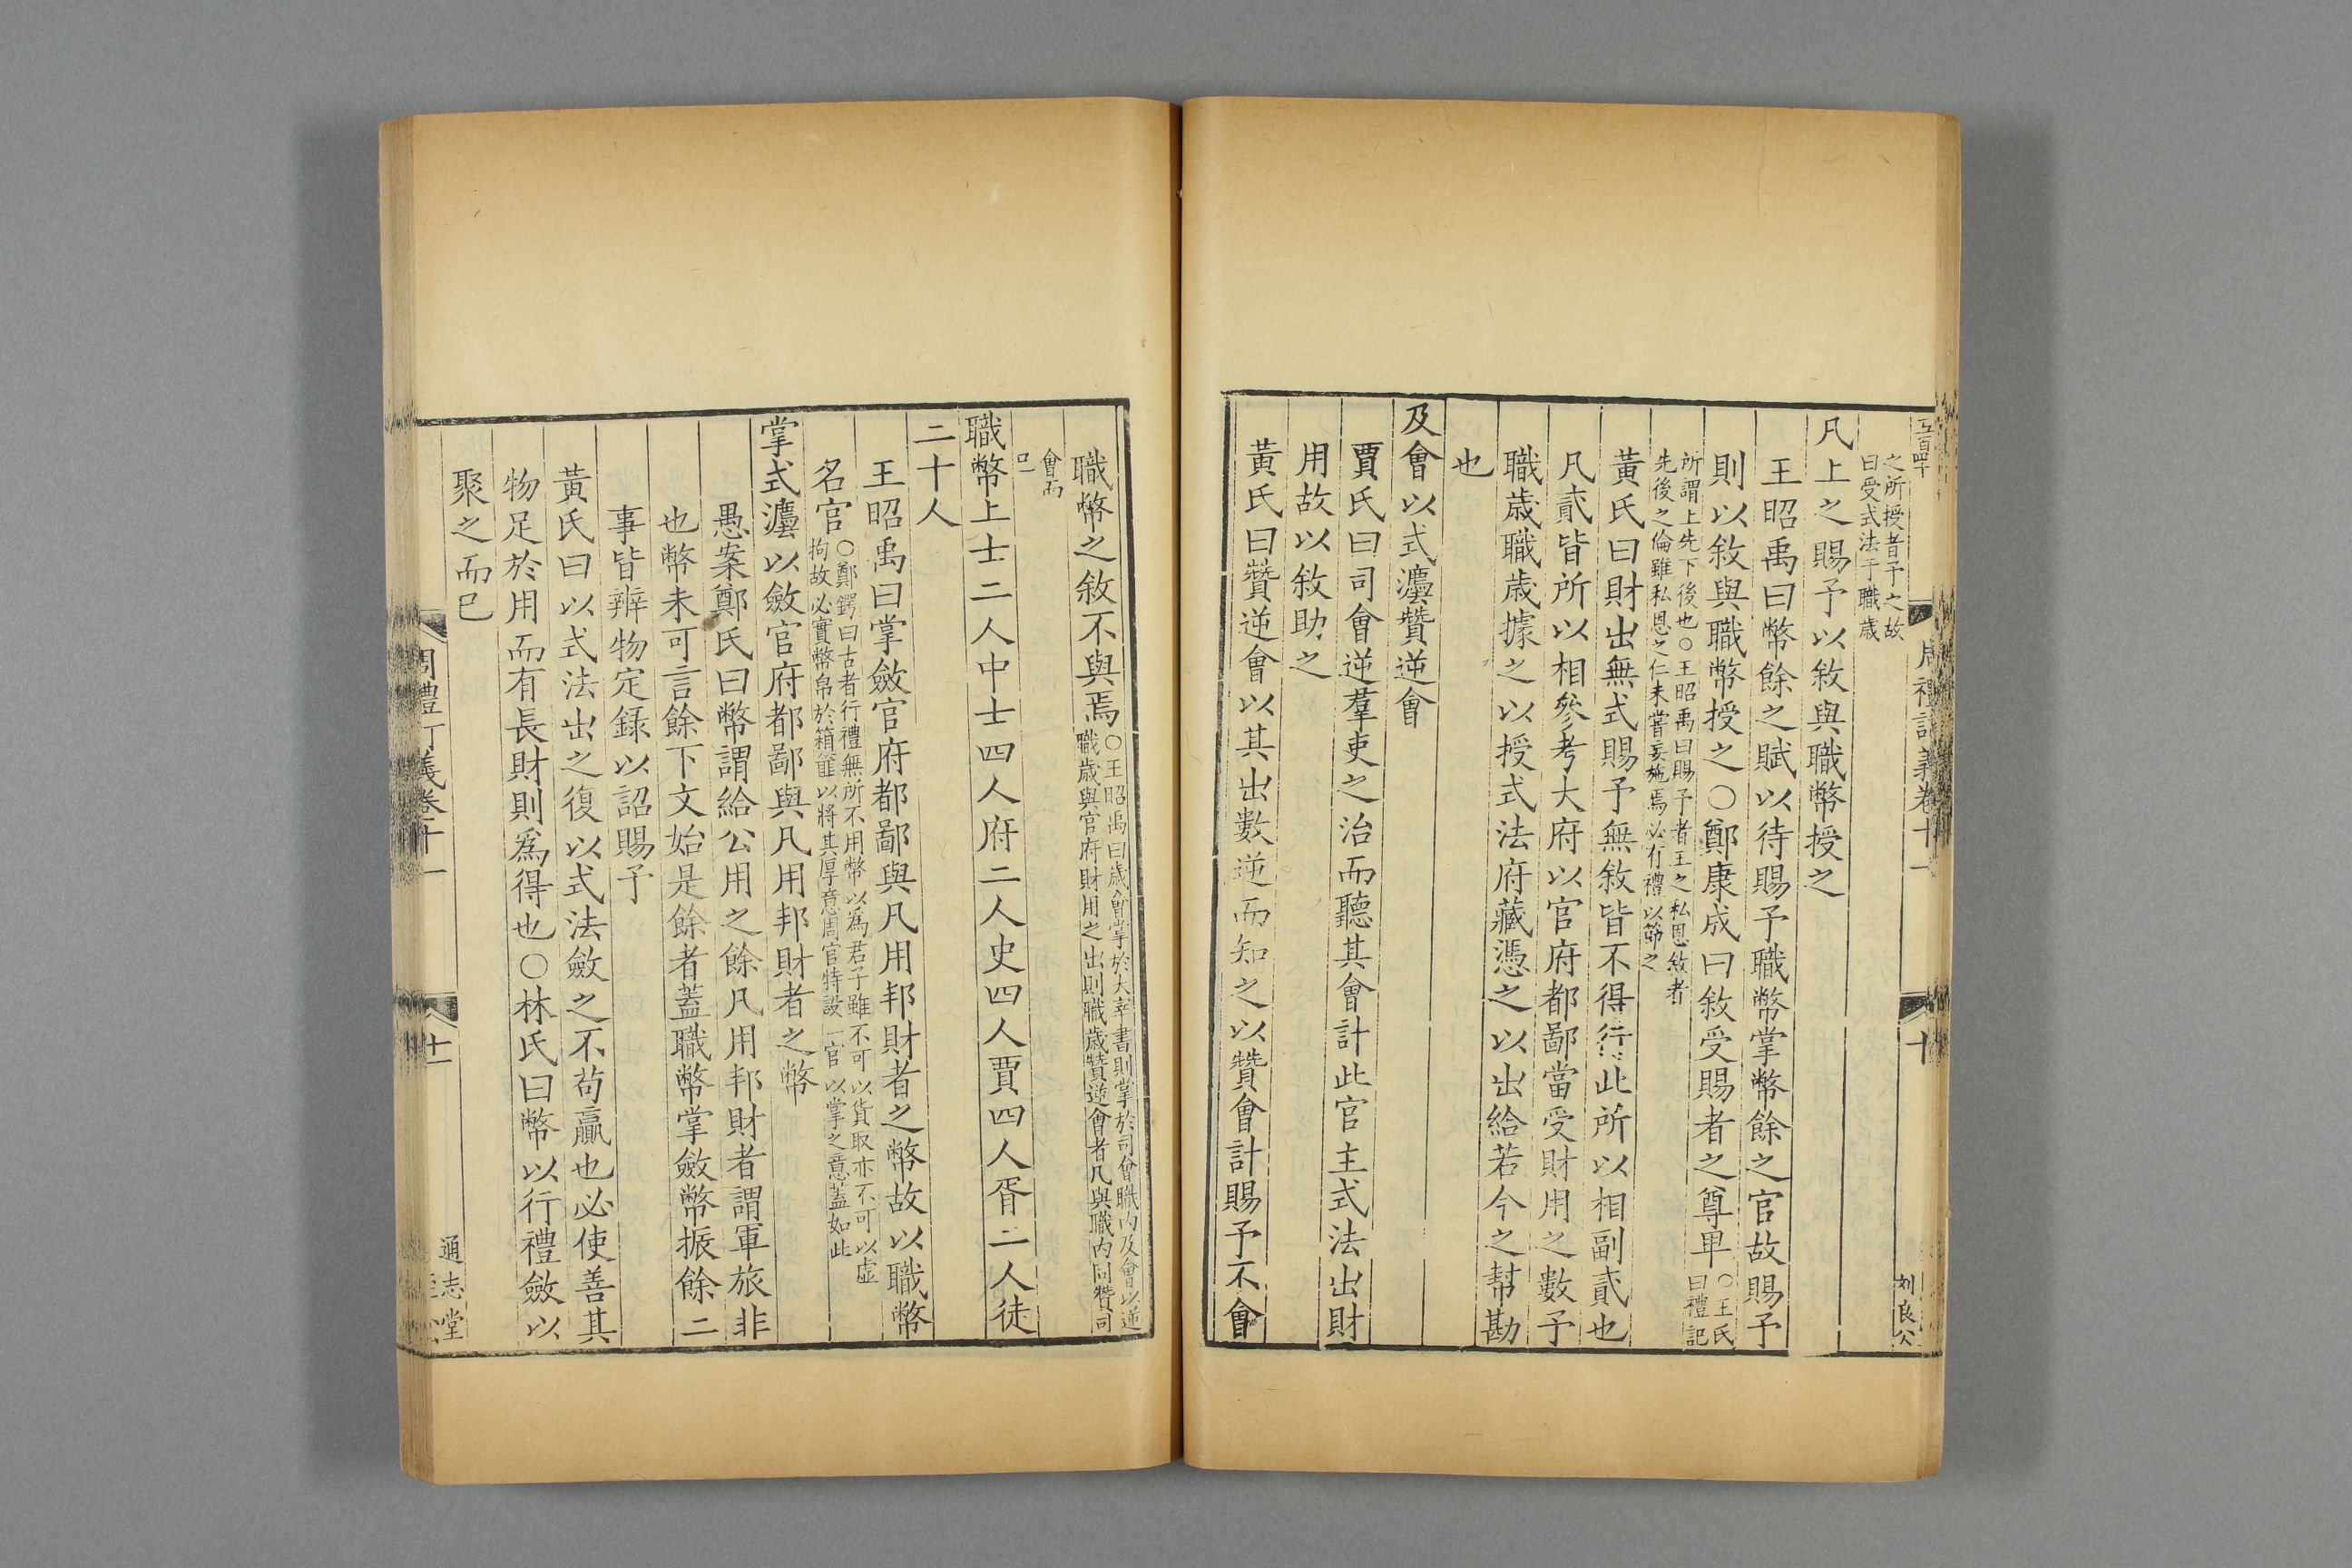 之所授者予之故
曰受式法于職歳
凡上之賜予以敘與職幣授之
王昭禹曰幣餘之賦以待賜予職幣掌幣餘之官故賜予
則以敘與職幣授之○鄭康成曰敘受賜者之尊卑○王氏
曰禮記
所謂上先下後也○王昭禹曰賜予者王之私恩敘者
先後之倫雖私恩之仁未嘗妄施焉必有禮以節之
黃氏曰財出無式賜予無敘皆不得行此所以相副貳也
凡貳皆所以相參考大府以官府都鄙當受財用之數予
職歳職歳據之以授式法府藏憑之以出給若今之幇勘
也
及會以式灋贊逆會
賈氏曰司會逆羣吏之治而聽其會計此官主式法出財
用故以敘助之
黃氏曰贊逆會以其出數逆而知之以贊會計賜予不會
周禮訂義卷十一
十
刘良公
職幣之敘不與焉○王昭禹曰歳會掌於大宰書則掌於司會職内及會以逆
職歳與官府財用之出則職歳贊逆會者凡與職内同贊司
會而
已
職幣上士二人中士四人府二人史四人賈四人胥二人徒
二十人
王昭禹曰掌斂官府都鄙與凡用邦財者之幣故以職幣
名官○鄭鍔曰古者行禮無所不用幣以爲君子雖不可以貨取亦不可以虛
拘故必實幣帛於箱篚以將其厚意周官特設一官以掌之意蓋如此
掌式灋以斂官府都鄙與凡用邦財者之幣
愚案鄭氏曰幣謂給公用之餘凡用邦財者謂軍旅非
也幣未可言餘下文始是餘者蓋職幣掌斂幣振餘二
事皆辨物定錄以詔賜予
黃氏曰以式法出之復以式法斂之不苟贏也必使善其
物足於用而有長財則爲得也○林氏曰幣以行禮斂以
聚之而已
周禮訂義卷十一
十一
通志堂